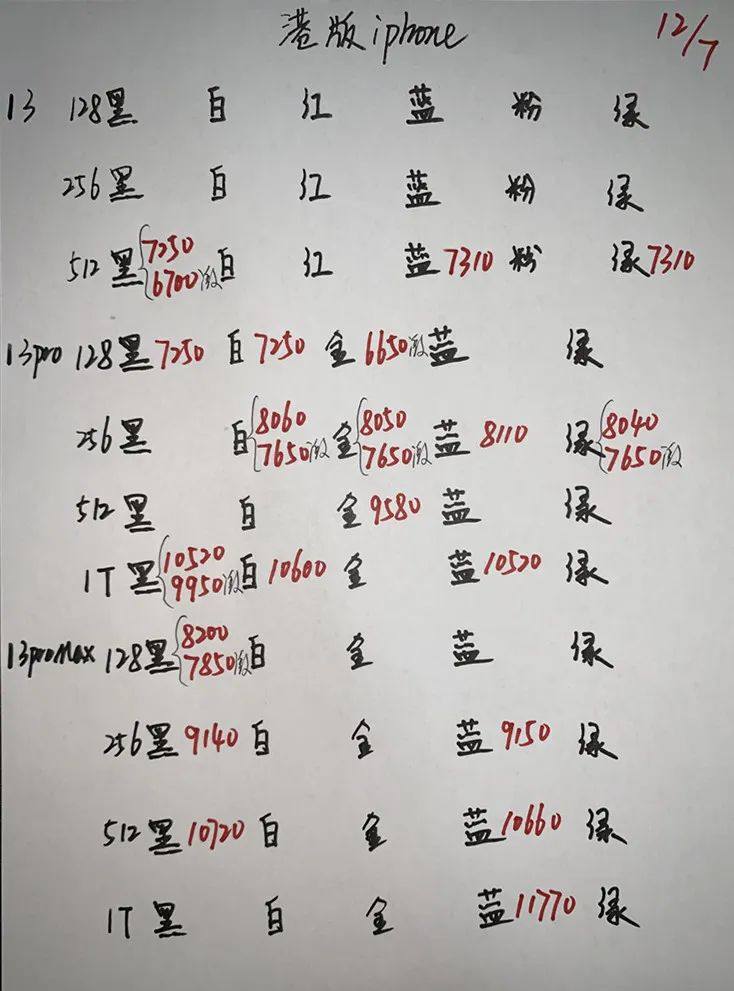 港版iphone 12/7
13 128黑 白 红 蓝 粉 绿
256黑 白 红 蓝 粉 绿
512黑{7250 6700激 白 红 蓝7310 粉 绿7310
13pro 128黑7250 白7250 金6650激 蓝 绿
256黑 白{8060 7650激 金{8050 7650激 蓝8110 绿{8040 7650激
512黑 白 金9580 蓝 绿
1T黑{10520 9950激 白10600 金 蓝10520 绿
13proMax 128黑{8200 7850激 白 金 蓝 绿
256黑9140 白 金 蓝9150 绿
512黑10720 白 金 蓝10660 绿
1T黑 白 金 蓝11770 绿